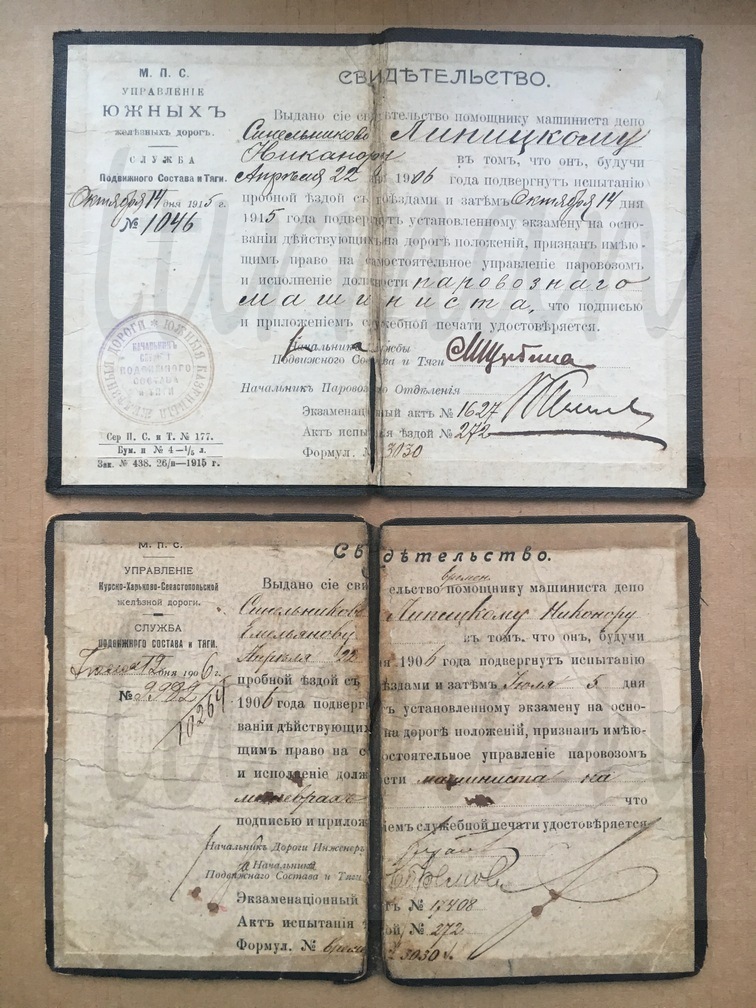 М. П. С.
УПРАВЛЕНІЕ
ЮЖНЫХЪ
желѣзныхъ дорогъ.
СЛУЖБА
Подвижного Состава и Тяги.
Октября 14 дня 1915 г.
№ 1046
СВИДѢТЕЛЬСТВО.
Выдано сіе свидѣтельство помощнику машиниста депо
Синельниково Липицкому
Никанору въ томъ, что онъ, будучи
Апрѣля 22 1906 года подвергнутъ испытанію
пробной ѣздой съ поѣздами и затѣмъ Октября 14 дня
1915 года подвергнутъ установленному экзамену на осно-
ваніи дѣйствующихъ на дорогѣ положеній, признанъ имѣю-
щимъ право на самостоятельное управленіе паровозомъ
и исполненіе должности паровознаго
машиниста, что подписью
и приложеніемъ служебной печати удостовѣряется.
Начальникъ Службы
Подвижного Состава и Тяги
Начальникъ Паровозн Отдѣленія
Экзаменаціонный актъ № 1627
Актъ испытанія ѣздой № 272
Формул. № 3030
ЮЖНЫЯ КАЗЕННЫЯ ЖЕЛѢЗНЫЯ ДОРОГИ
НАЧАЛЬНИКЪ
СЛУЖБЫ
ПОДВИЖНОГО
СОСТАВА
И ТЯГИ
Сер П. С. и Т. № 177.
Бум. и № 4—1/5 л.
Зак. № 438. 26/п—1915 г.
М. П. С.
УПРАВЛЕНІЕ
Курско-Харьково-Севастопольской
желѣзной дороги.
СЛУЖБА
ПОДВИЖНОГО СОСТАВА И ТЯГИ.
12 дня 1906 г.
№ 9992
10264
Свидѣтельство.
времен.
Выдано сіе свидѣтельство помощнику машиниста депо
Синельниково Липицкому Никонору
Емельянову въ томъ, что онъ, будучи
Апрѣля 22 дня 1906 года подвергнутъ испытанію
пробной ѣздой съ поѣздами и затѣмъ Іюля 5 дня
1906 года подвергнутъ установленному экзамену на осно-
ваніи дѣйствующихъ на дорогѣ положеній, признанъ имѣю-
щимъ право на самостоятельное управленіе паровозомъ
и исполненіе должности машиниста на
маневрахъ что
подписью и приложеніемъ служебной печати удостовѣряется
Начальникъ Дороги Инженеръ
Начальникъ
Подвижного Состава и Тяги
Экзаменаціонный актъ № 17408
Актъ испытанія ѣздой, № 272
Формул. № 3030